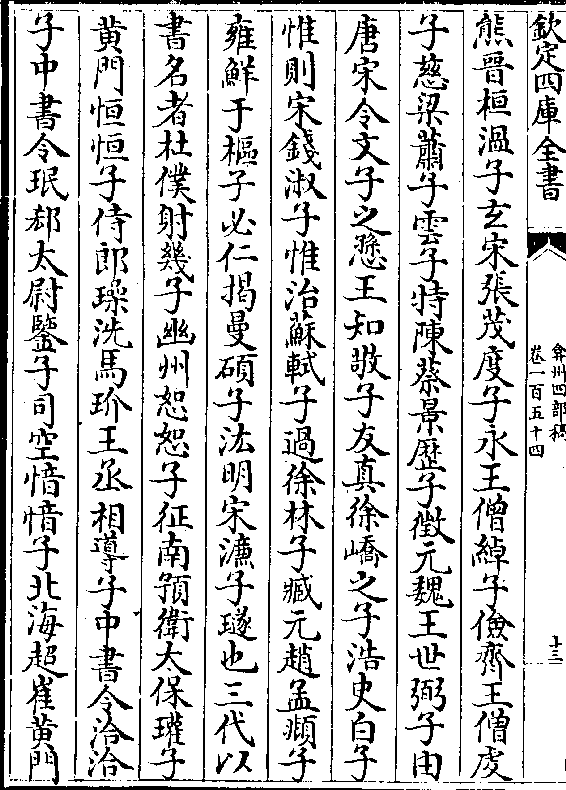 欽定四庫全書
弇州四部稿
卷一百五十四
十三
熊晉桓溫子玄宋張茂度子永王僧綽子儉齊王僧虔
子慈梁蕭子雲子特陳蔡景歷子徵元魏王世弼子由
唐宋令文子之愻王知敬子友真徐嶠之子浩史白子
惟則宋錢淑子惟治蘇軾子過徐林子臧元趙孟頫子
雍鮮于樞子必仁揭曼碩子汯明宋濂子璲也三代以
書名者杜僕射幾子幽州恕恕子征南預衛太保瓘子
黃門恒恒子侍郎璪洗馬玠王丞相導子中書令洽洽
子中書令珉郗太尉鑒子司空愔愔子北海超崔黃門